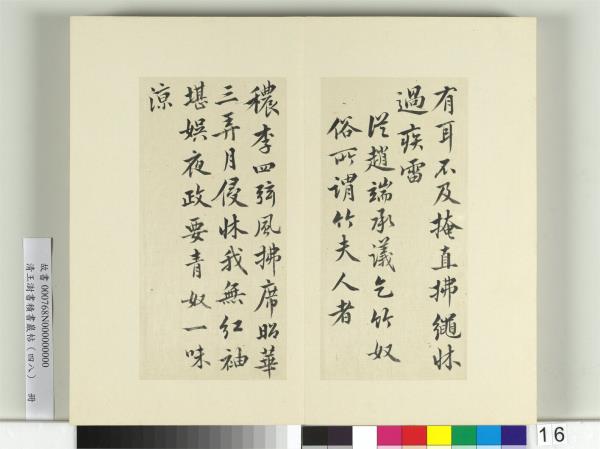 有耳不及掩直拂繩牀
過疾雷
從趙端承議乞竹奴
俗所謂竹夫人者
穠李四弦風拂席昭華
三弄月侵牀我無紅袖
堪娛夜政要青奴一味
涼
故書 000768N000000000
清王澍書積書巖帖(四八) 冊
16